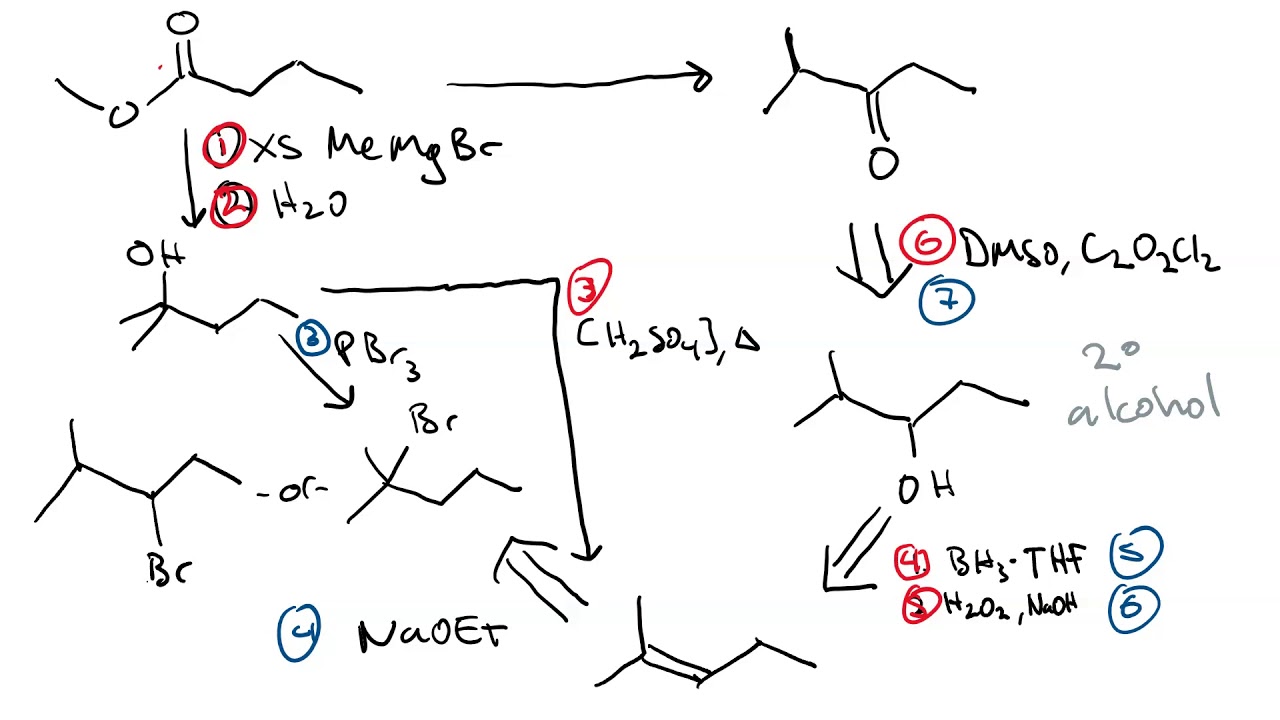 O
O
① XS MeMgBr
② H2O
O
OH
③ PBr3
③
[H2SO4], Δ
⑥ DMSO, C2O2Cl2
⑦
2° alcohol
Br
-or-
Br
OH
④ BH3·THF ⑤
⑤ H2O2, NaOH ⑥
④ NaOEt